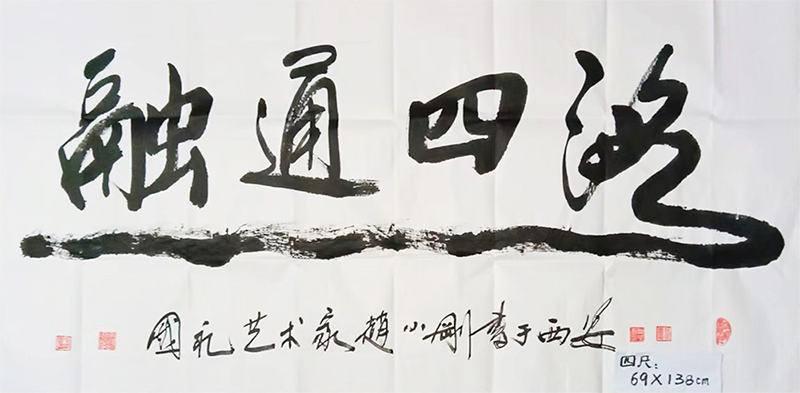 融通四海
國礼艺术家趙小剛書于西安
四尺：
69×138cm